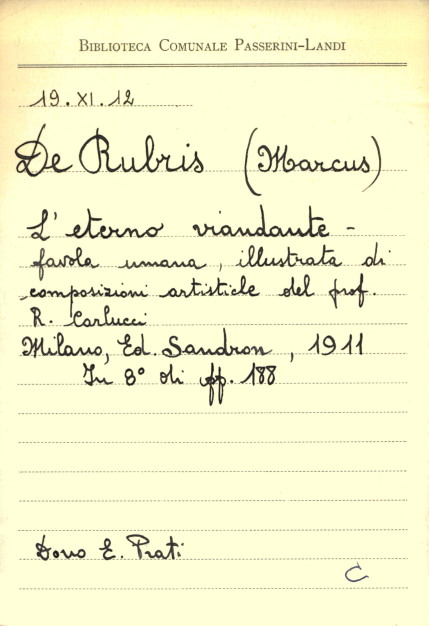 BIBLIOTECA COMUNALE PASSERINI-LANDI
19.XI.12
De Rubris (Marcus)
L'eterno viandante -
favola umana, illustrata di
composizioni artistiche del prof.
R. Carlucci
Milano, Ed. Sandron, 1911
In 8° di pp. 188
Dono E. Prati
C